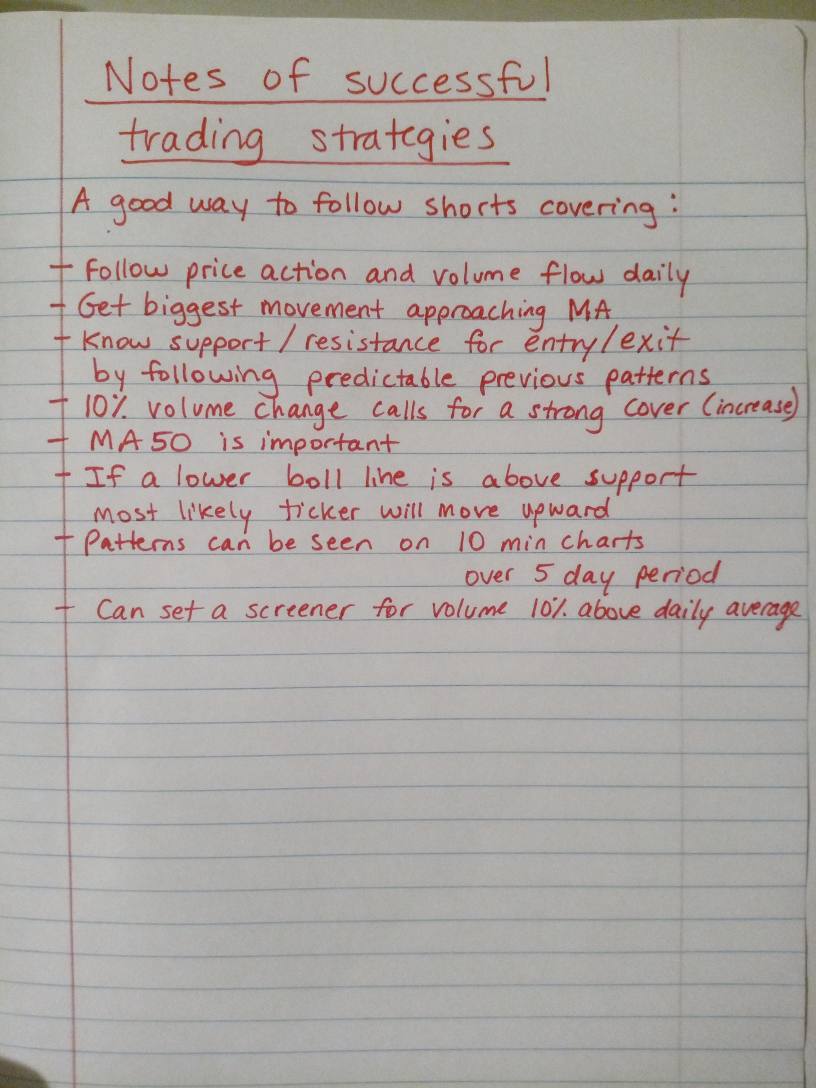 Notes of successful
trading strategies
A good way to follow shorts covering:
- Follow price action and volume flow daily
- Get biggest movement approaching MA
- Know support/resistance for entry/exit
by following predictable previous patterns
- 10% volume change calls for a strong cover (increase)
- MA 50 is important
- If a lower boll line is above support
most likely ticker will move upward
- Patterns can be seen on 10 min charts
over 5 day period
- Can set a screener for volume 10% above daily average